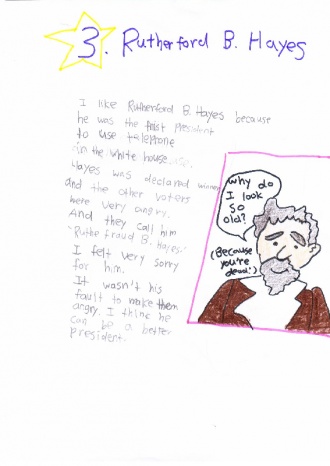 3. Rutherford B. Hayes
I like Rutherford B. Hayes because
he was the first president
to use telephone
in the white house.
Hayes was declared winner
and the other voters
were very angry.
And they call him
"Ruthe fraud B. Hayes."
I felt very sorry
for him.
It wasn't his
fault to make them
angry. I think he
can be a better
president.
why do
I look
so
old?
(Because
you're
dead.)